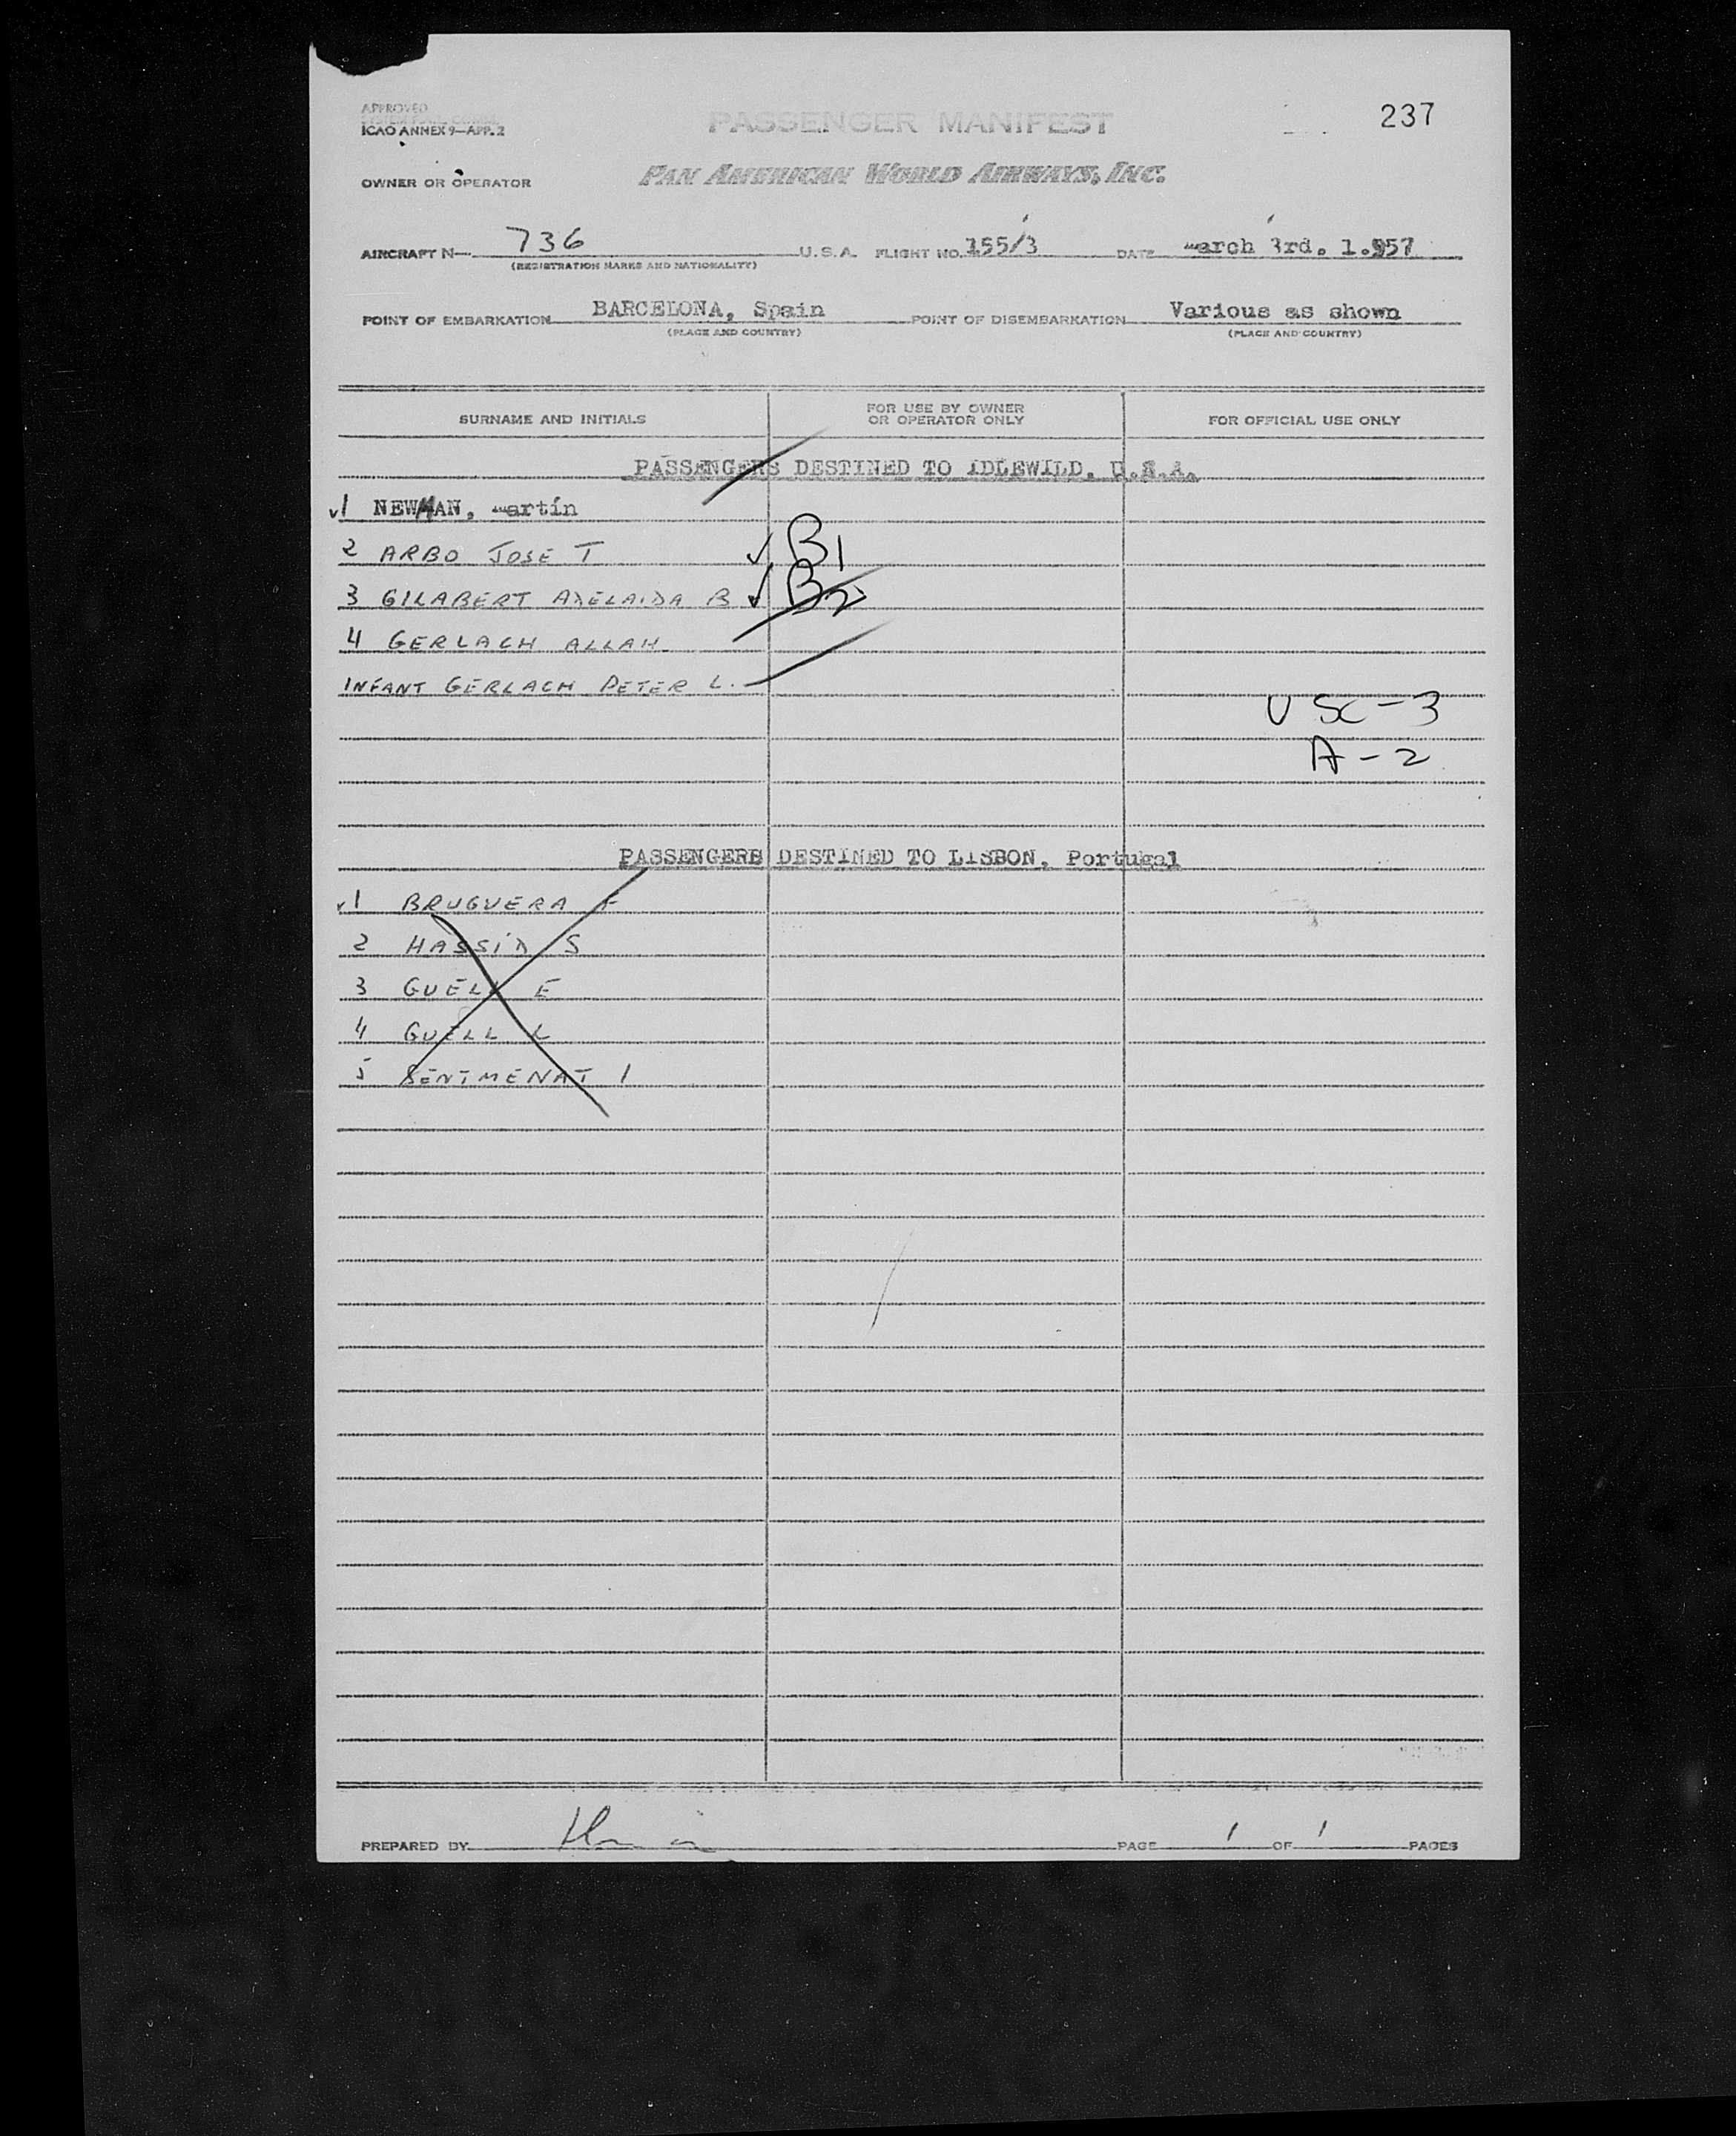 237
APPROVED
ICAO ANNEX 9—APP. 2
PASSENGER MANIFEST
OWNER OR OPERATOR
PAN AMERICAN WORLD AIRWAYS, INC.
AIRCRAFT N— 736 U.S.A. FLIGHT NO. 155/3 DATE March 3rd. 1.957
(REGISTRATION MARKS AND NATIONALITY)
POINT OF EMBARKATION BARCELONA, Spain POINT OF DISEMBARKATION Various as shown
(PLACE AND COUNTRY) (PLACE AND COUNTRY)
SURNAME AND INITIALS FOR USE BY OWNER OR OPERATOR ONLY FOR OFFICIAL USE ONLY
PASSENGERS DESTINED TO IDLEWILD, U.S.A.
✓1 NEWMAN, Martín
2 ARBO JOSE T ✓ B1
3 GILABERT ADELAIDA B ✓ B2
4 GERLACH ALLAH
INFANT GERLACH PETER L.
USC-3
A-2
PASSENGERS DESTINED TO LISBON, Portugal
✓1 BRUGUERA F
2 HASSID S
3 GUELL E
4 GUELL L
5 SENTMENAT I
PREPARED BY PAGE 1 OF 1 PAGES